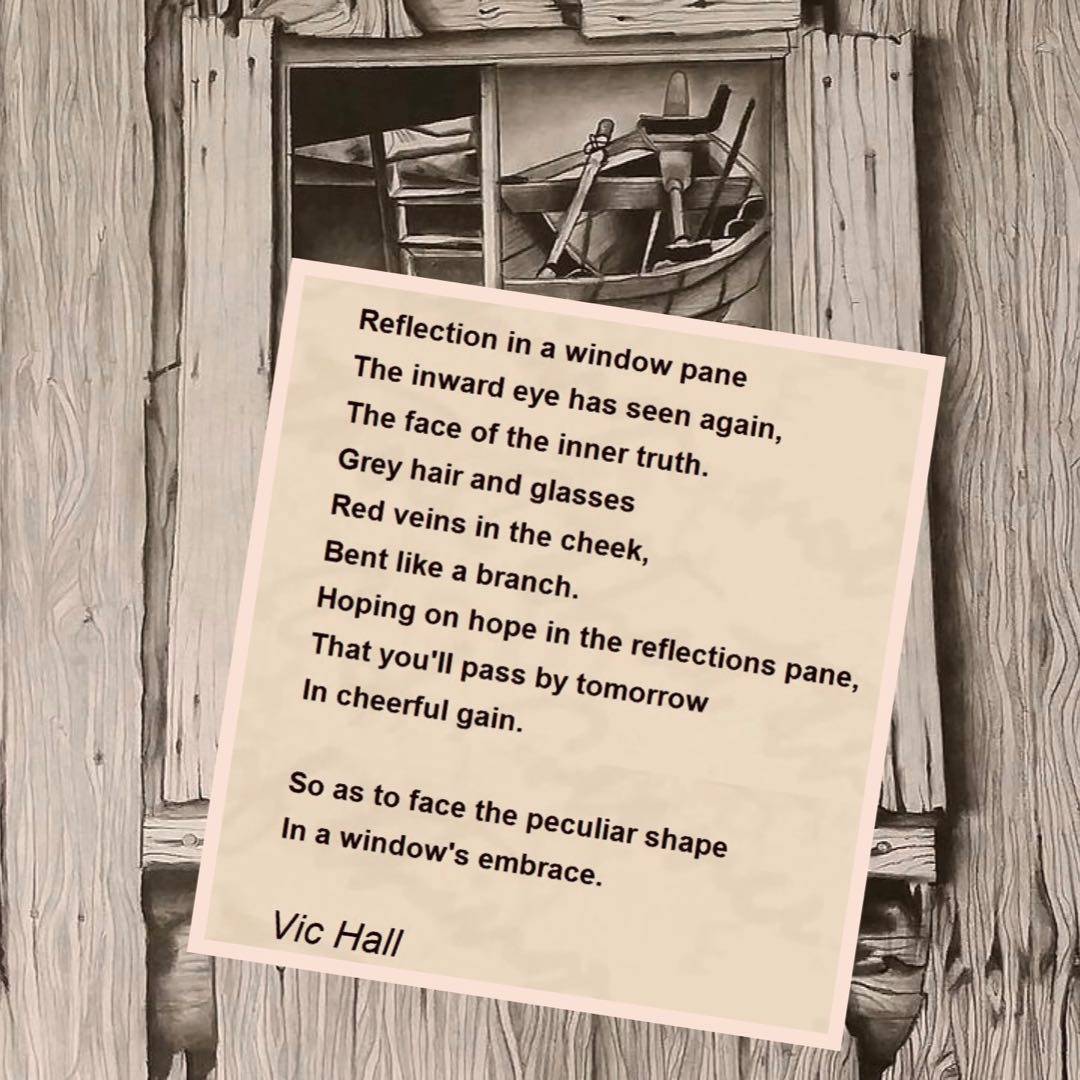 Reflection in a window pane
The inward eye has seen again,
The face of the inner truth.
Grey hair and glasses
Red veins in the cheek,
Bent like a branch.
Hoping on hope in the reflections pane,
That you'll pass by tomorrow
In cheerful gain.
So as to face the peculiar shape
In a window's embrace.
Vic Hall